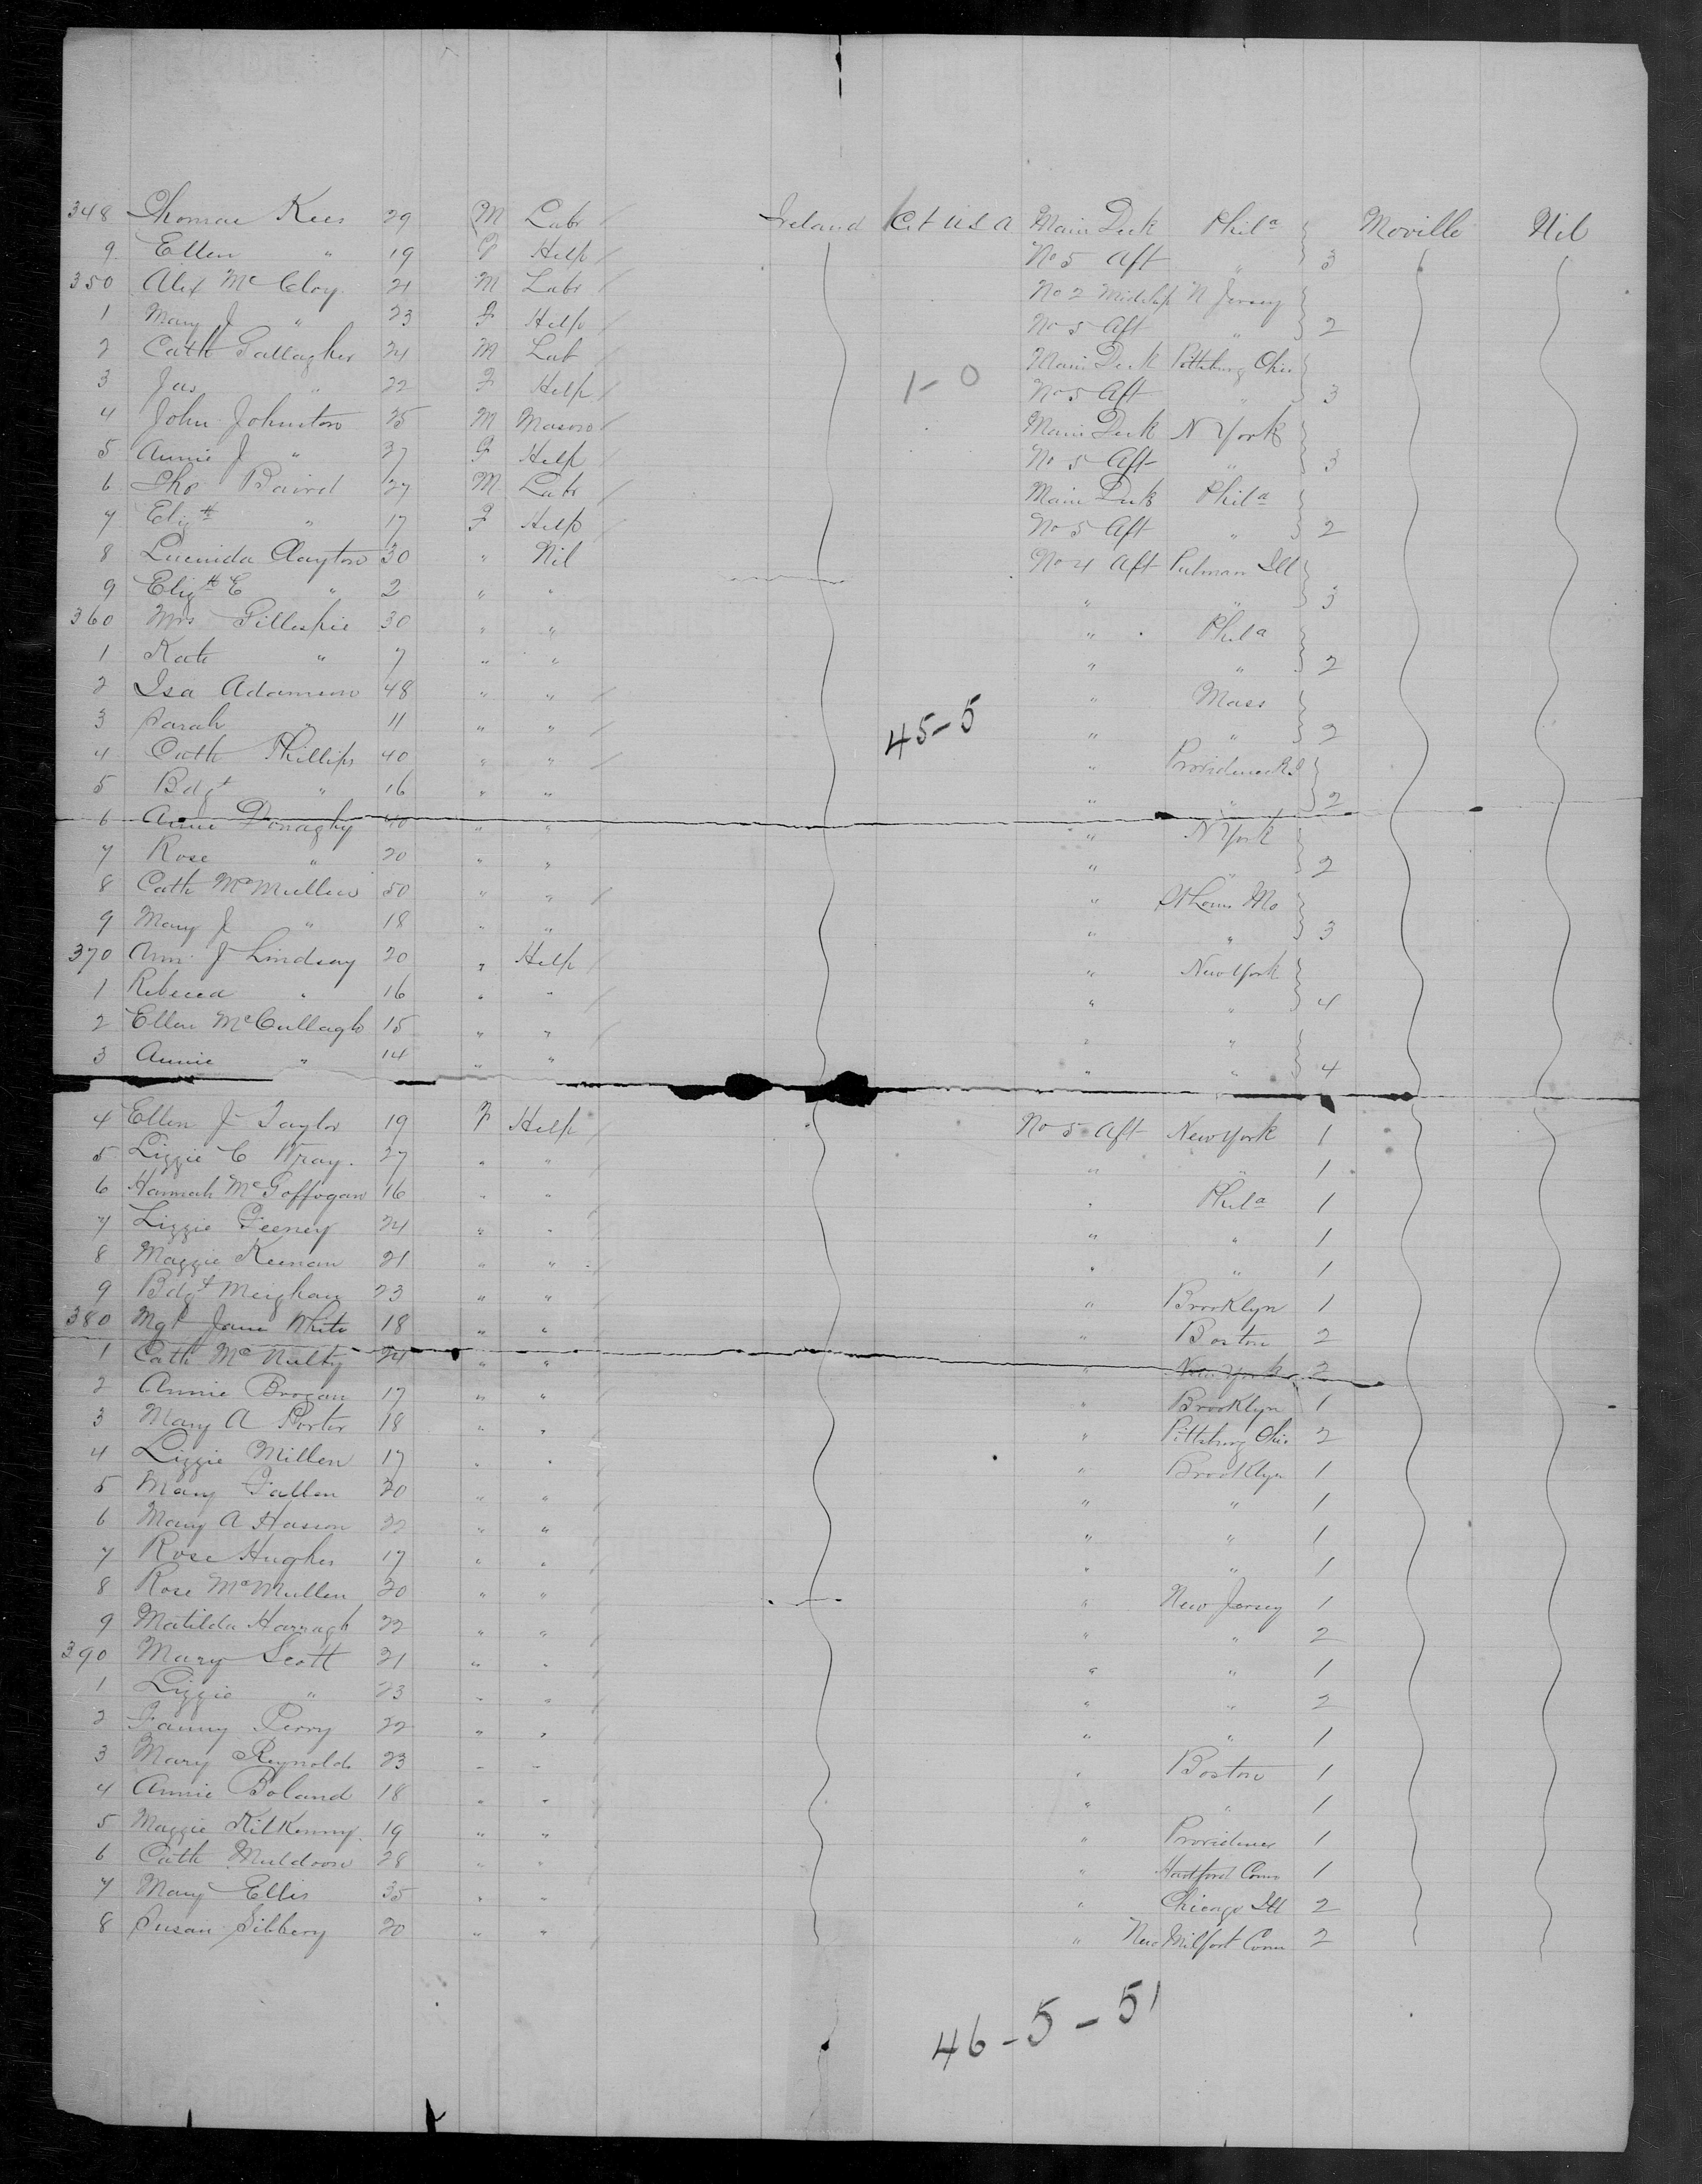 348 Thomas Kees 29 M Labr / Ireland Cit USA Main Deck Phila Moville Nil
9 Ellen " 19 F Help / No 5 Aft " 3
350 Alex McCloy 21 M Labr / No 2 Midship N Jersey
1 Mary J " 23 F Help / No 5 Aft " 2
2 Cath Gallagher 24 M Lab / Main Deck Pittsburg Ohio
3 Jas " 22 F Help / 1-0 No 5 Aft " 3
4 John Johnston 25 M Mason / Main Deck N York
5 Annie J " 27 F Help / No 5 Aft " 3
6 Tho Baird 27 M Labr / Main Deck Phila
7 Elizth " 17 F Help / No 5 Aft " 2
8 Lucinda Clayton 30 " Nil No 4 Aft Pulman Ill
9 Elizth E " 2 " " " " 3
360 Mrs Gillespie 30 " " " Phila
1 Kate " 7 " " " " 2
2 Isa Adamson 48 " " / " Mass
3 Sarah " 11 " " / 45-5 " " 2
4 Cath Phillips 40 " " / " Providence R.I
5 Bdgt " 16 " " " " 2
6 Annie Donaghy 40 " " " N York
7 Rose " 20 " " " " 2
8 Cath McMullen 50 " " / " St Louis Mo
9 Mary J " 18 " " " " 3
370 Ann J Lindsay 20 " Help / " New York
1 Rebecca " 16 " " / " " 4
2 Ellen McCullagh 15 " " / " "
3 Annie " 14 " " / " " 4
4 Ellen J Taylor 19 F Help / No 5 Aft New York 1
5 Lizzie C Wray 27 " " / " " 1
6 Hannah McGoffogan 16 " " " Phila 1
7 Lizzie Feeney 24 " " / " " 1
8 Maggie Keenan 21 " " / " " 1
9 Bdgt Meighan 23 " " / " Brooklyn 1
380 Mgt Jane White 18 " " / " Boston 2
1 Cath McNulty 24 " " " New York 2
2 Annie Brogan 17 " " / " Brooklyn 1
3 Mary A Porter 18 " " / " Pittsburg Ohio 2
4 Lizzie Millen 17 " " / " Brooklyn 1
5 Mary Fallen 20 " " / " " 1
6 Mary A Hasson 22 " " / " " 1
7 Rose Hughes 17 " " / " " 1
8 Rose McMullen 20 " " / " New Jersey 1
9 Matilda Harragh 22 " " / " " 2
390 Mary Scott 21 " " / " " 1
1 Lizzie " 23 " " / " " 2
2 Fanny Perry 22 " " / " " 1
3 Mary Reynolds 23 " " / " Boston 1
4 Annie Boland 18 " " / " " 1
5 Maggie Kilkenny 19 " " / " Providence 1
6 Cath Muldoon 28 " " / " Hartford Conn 1
7 Mary Ellis 35 " " / " Chicago Ill 2
8 Susan Sibbery 20 " " / " New Milfort Conn 2
46-5-51